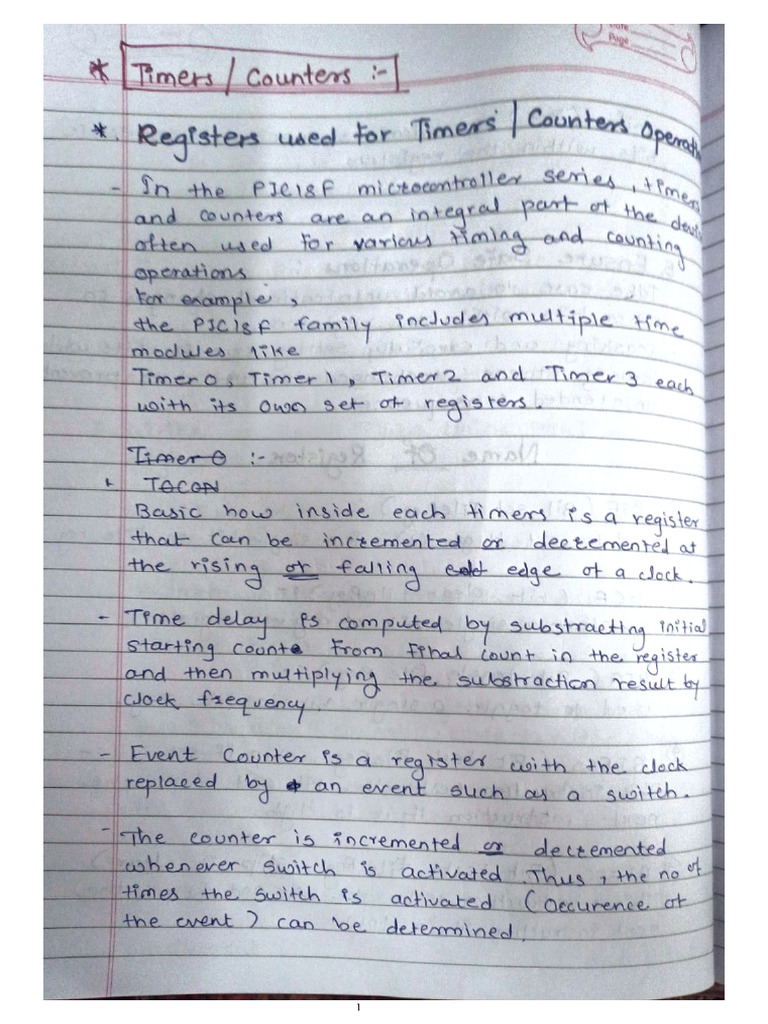 Date
Page
* Timers / Counters :-
*. Registers used for Timers / Counters Operati
- In the PIC18F microcontroller series, timers
and counters are an integral part of the devi
often used for various timing and counting
operations
for example,
the PIC18F family includes multiple time
modules like
Timer 0, Timer 1, Timer 2 and Timer 3 each
with its own set of registers.
Timer 0 :-
TOCON
Basic how inside each timers is a register
that can be incremented or decremented at
the rising or falling edge of a clock.
- Time delay is computed by substracting initial
starting count from final count in the register
and then multiplying the substraction result by
clock frequency
- Event Counter is a register with the clock
replaced by an event such as a switch.
- The counter is incremented or decremented
whenever switch is activated. Thus, the no of
times the switch is activated (Occurence of
the event) can be determined.
1